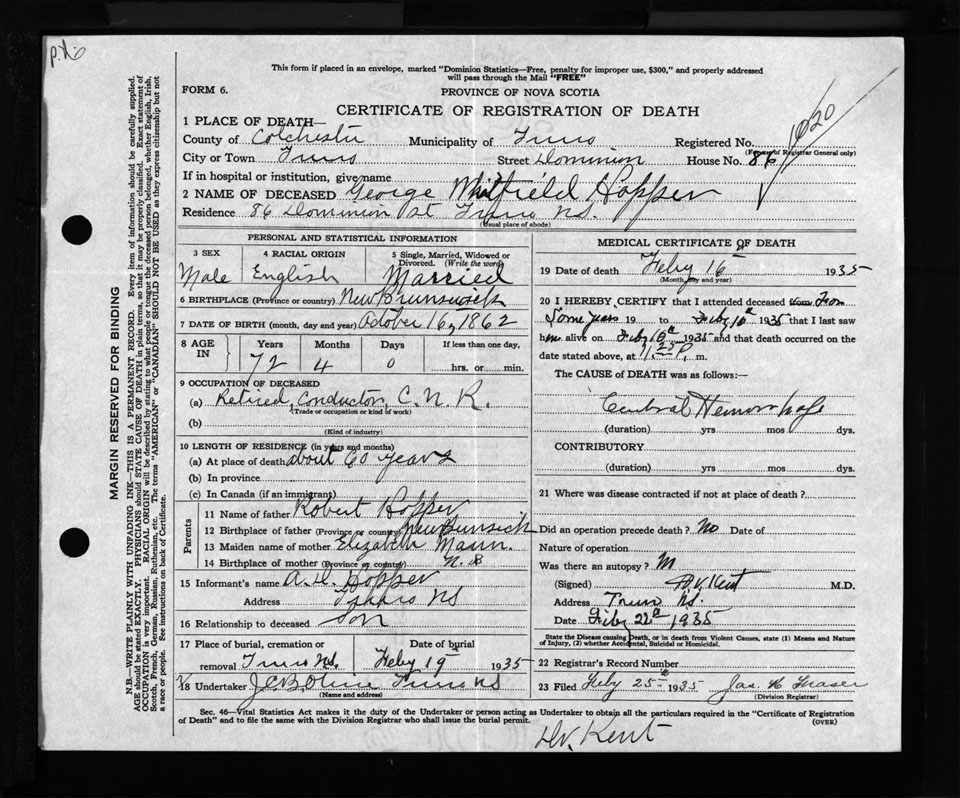 This form if placed in an envelope, marked "Dominion Statistics—Free, penalty for improper use, $300," and properly addressed
will pass through the Mail "FREE"
FORM 6.
PROVINCE OF NOVA SCOTIA
CERTIFICATE OF REGISTRATION OF DEATH
1 PLACE OF DEATH—
County of Colchester Municipality of Truro Registered No.
1020
(For use of Registrar General only)
City or Town Truro Street Dominion House No. 86
If in hospital or institution, give name
2 NAME OF DECEASED George Hopper
Residence 86 Dominion St Truro N.S.
(Usual place of abode)
MARGIN RESERVED FOR BINDING
N.B.—WRITE PLAINLY WITH UNFADING INK—THIS IS A PERMANENT RECORD. Every item of information should be carefully supplied.
AGE should be stated EXACTLY. PHYSICIANS should STATE CAUSE OF DEATH in plain terms, so that it may be properly classified. Exact statement of
OCCUPATION is very important. RACIAL ORIGIN will be described by stating to what people or tongue the deceased person belonged, whether English, Irish,
Scotch, French, German, Russian, Ruthenian, etc. The terms "AMERICAN" or "CANADIAN" SHOULD NOT BE USED as they express citizenship but not
a race or people. See instructions on back of Certificate.
PERSONAL AND STATISTICAL INFORMATION
3 SEX 4 RACIAL ORIGIN 5 Single, Married, Widowed or
Divorced. (Write the word)
Male English Married
6 BIRTHPLACE (Province or country) New Brunswick
7 DATE OF BIRTH (month, day and year) October 16, 1862
8 AGE IN Years Months Days If less than one day,
72 4 0 hrs. or min.
9 OCCUPATION OF DECEASED
(a) Retired conductor C.N.R.
(Trade or occupation or kind of work)
(b)
(Kind of industry)
10 LENGTH OF RESIDENCE (in years and months)
(a) At place of death about 60 years
(b) In province
(c) In Canada (if an immigrant)
Parents
11 Name of father Robert Hopper
12 Birthplace of father (Province or country)
13 Maiden name of mother Elizabeth Mann.
14 Birthplace of mother (Province or country) N.B
15 Informant's name A.H. Hopper
Address Truro NS
16 Relationship to deceased Son
17 Place of burial, cremation or Date of burial
removal Truro N.S. Feby 19 1935
18 Undertaker Truro NS
(Name and address)
MEDICAL CERTIFICATE OF DEATH
19 Date of death Feby 16th 1935
(Month, day and year)
20 I HEREBY CERTIFY that I attended deceased from From
Some years 19 to Feby 16th 1935 that I last saw
him alive on Feby 16th 1935 and that death occurred on the
date stated above, at 1.25 P. m.
The CAUSE of DEATH was as follows:—
Hemorrhage
(duration) yrs mos dys.
CONTRIBUTORY
(duration) yrs mos dys.
21 Where was disease contracted if not at place of death?
Did an operation precede death? No Date of
Nature of operation
Was there an autopsy?
(Signed) Kent M.D.
Address Truro NS.
Date Feby 22nd 1935
State the Disease causing Death, or in death from Violent Causes, state (1) Means and Nature
of Injury, (2) whether Accidental, Suicidal or Homicidal.
22 Registrar's Record Number
23 Filed Feby 25th 1935 Jas. H Fraser
(Division Registrar)
Sec. 46—Vital Statistics Act makes it the duty of the Undertaker or person acting as Undertaker to obtain all the particulars required in the "Certificate of Registration
of Death" and to file the same with the Division Registrar who shall issue the burial permit.
(OVER)
Dr. Kent